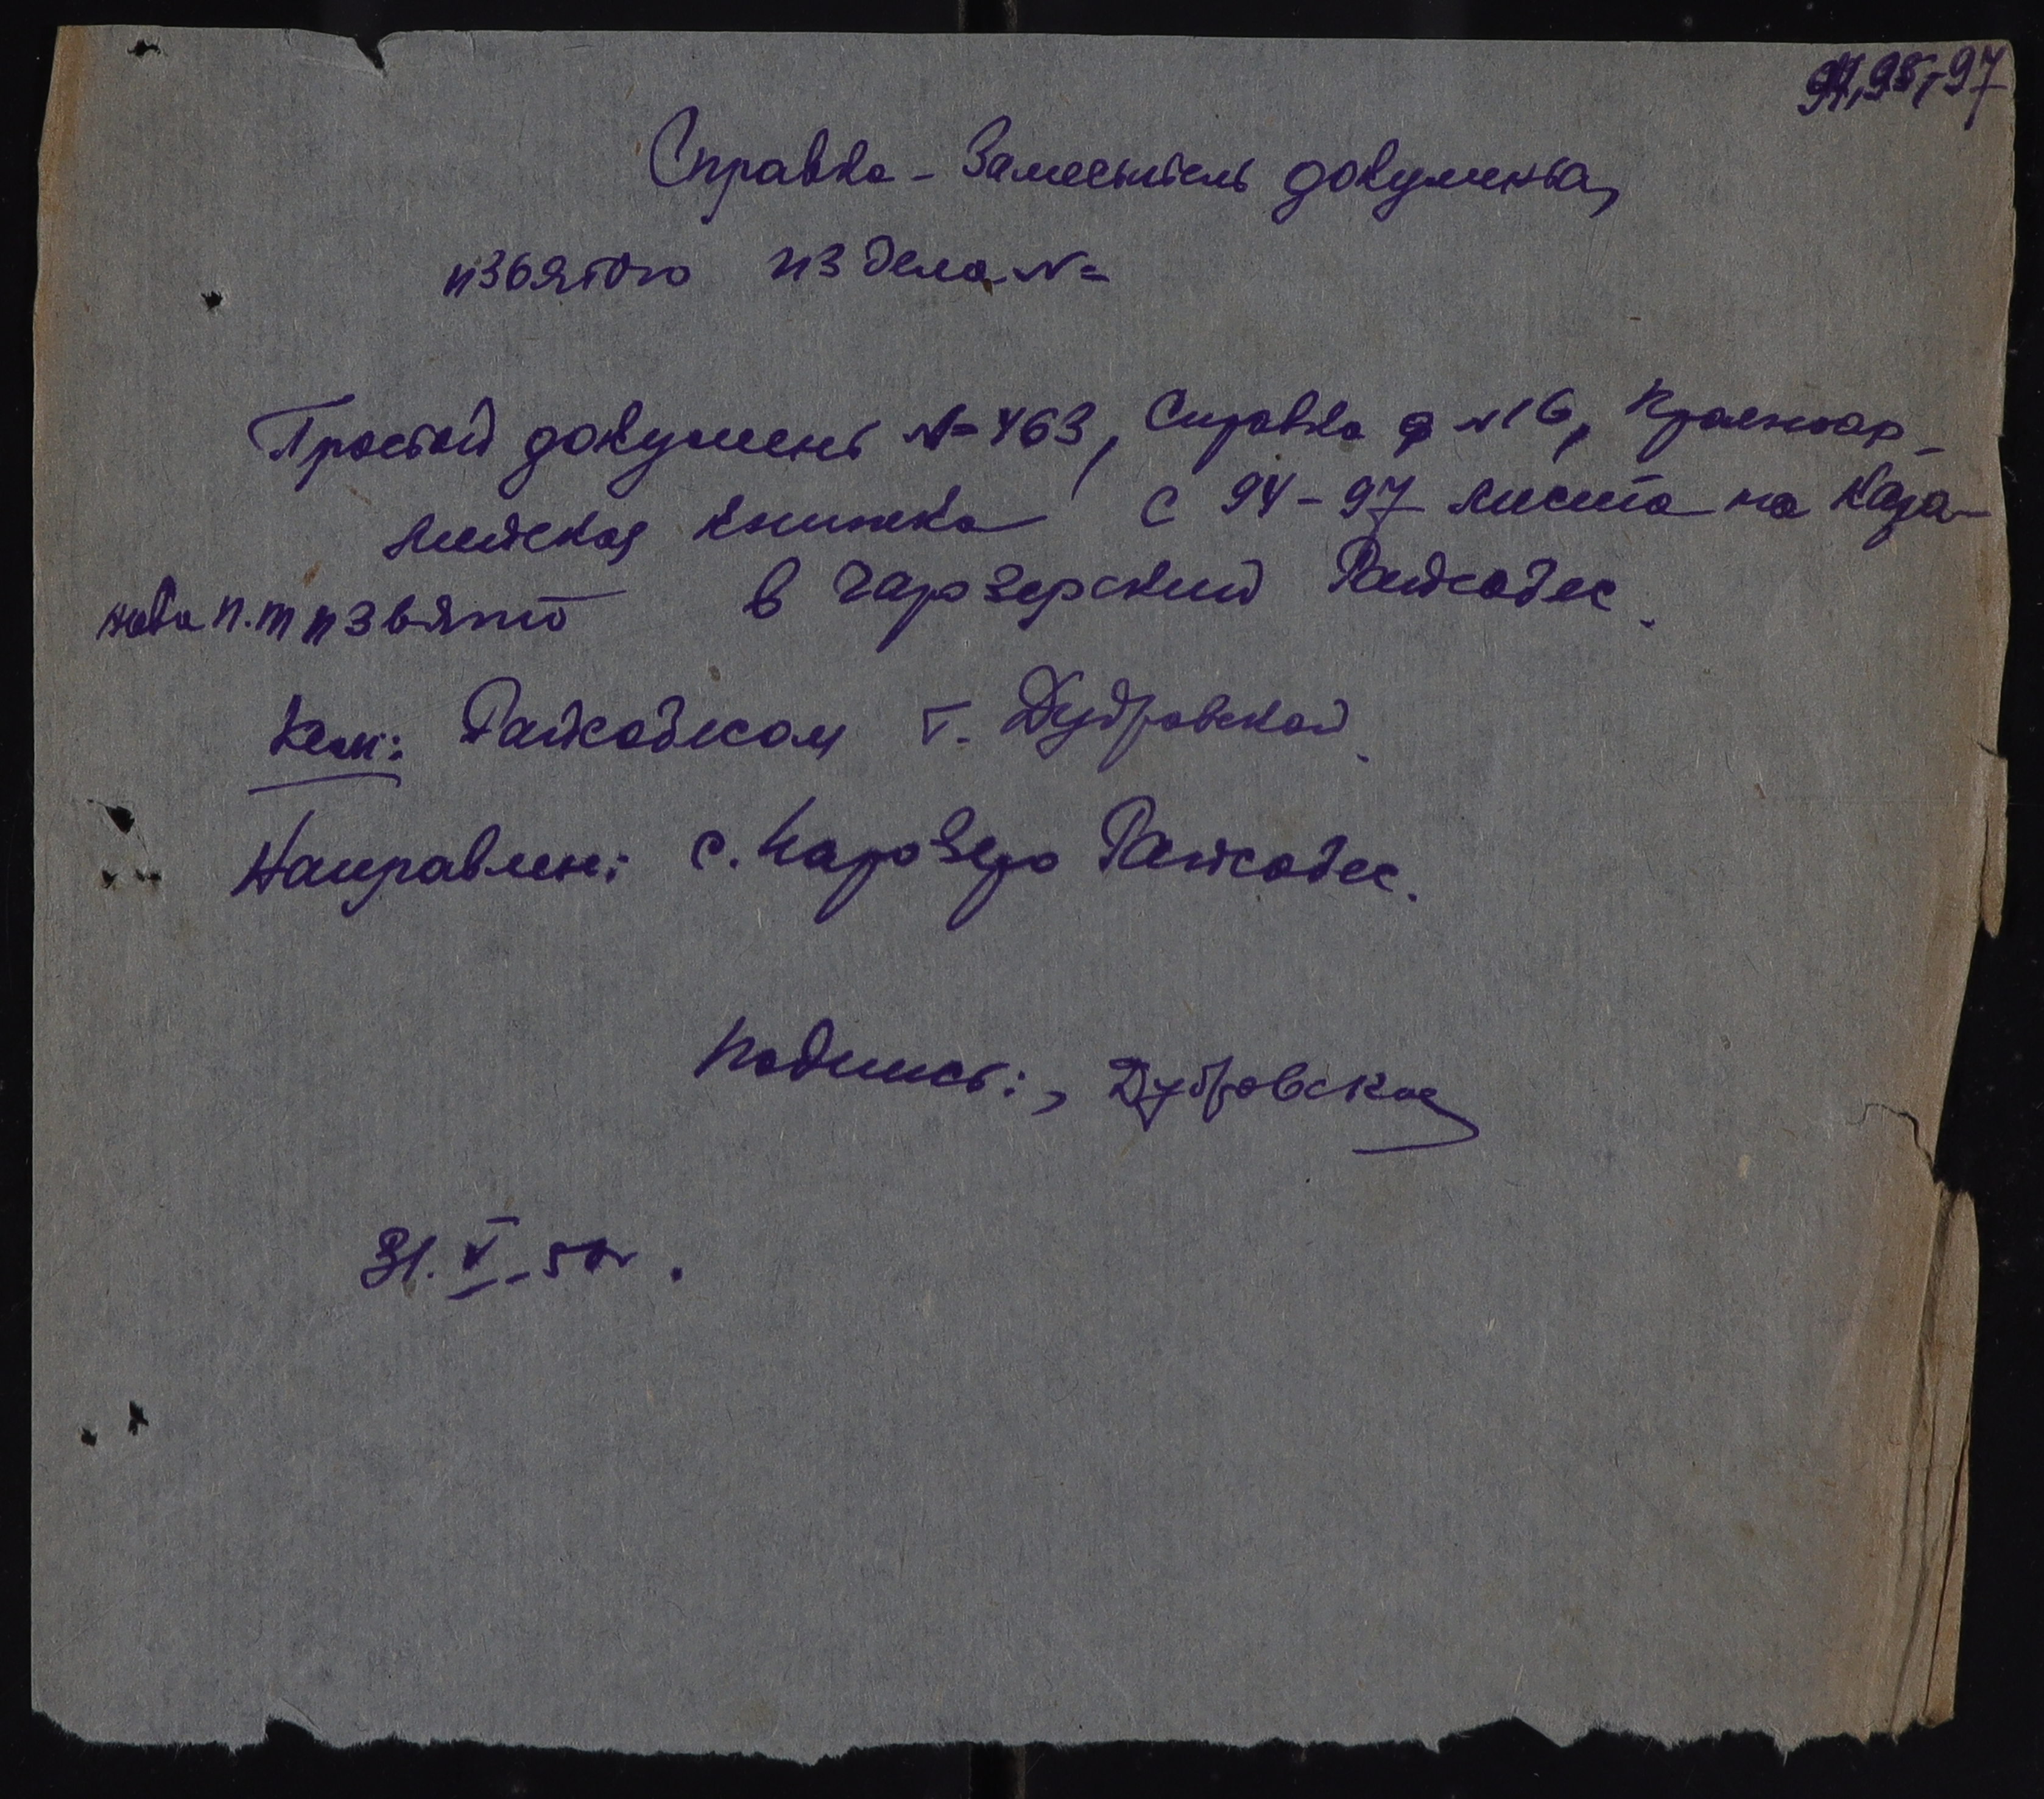 94,95,-97
Справка - Заместитель документа,
изъятого из дела №
Простой документ № 463, Справка ф №16, Красноар-
мейская книжка с 94-97 листа на Каза-
нова П.М изъято в Чарозерский Райсобес.
Кем: Райсобесом т. Дубровской.
Направлен: с. Чарозеро Райсобес.
Подпись:, Дубровская
31.V-50г.